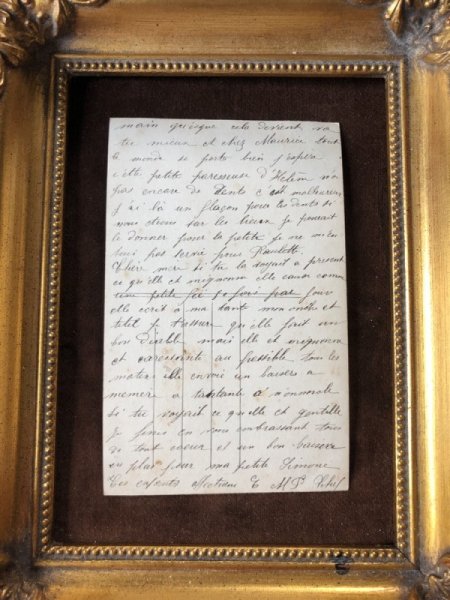 main quoique cela devient va
tu mieux et chez Maurice tout
le monde se porte bien j'espère
cette petite paresseuse d'Helène n'a
pas encore de dents c'est malheureux
j'ai là un flaçon pour les dents si
nous étions sur les lieux je pourrait
le donner pour la petite je ne m'en
suis pas servi pour Paulette
Chère mère si tu la voyait a présent
ce qu'elle et mignonne elle cause comme
une petite
elle ecrit à ma tante mon oncle et
titit je t'assure qu'elle fait un
bon diable mais elle et mignonne
et caressente au possible tous les
matins elle envoi un baisers a
memère a tantante a nononcle
si tu voyait ce qu'elle et gentille
Je finis en vous embrassant tous
de tout coeur et un bon baisers
en plus pour ma petite Simone
Tes enfants M P